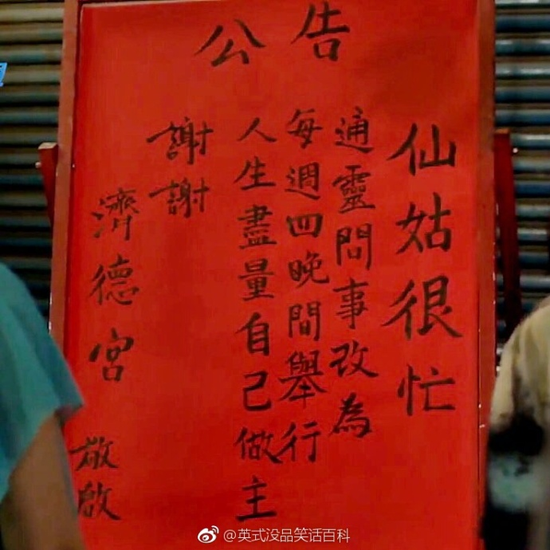 公告
仙姑很忙
通靈問事改為
每週四晚間舉行
人生盡量自己做主
謝謝
濟德宮 敬啟
@英式没品笑话百科